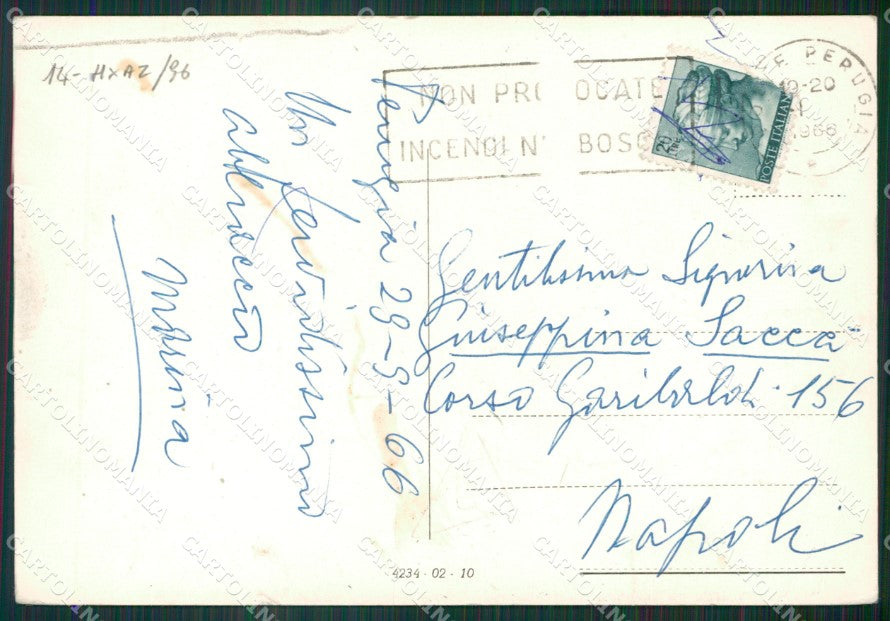 14-HXAZ/96
Perugia 29-9-66
Un fervidissimo
abbraccio
Marina
NON PRO OCATE
INCENDI N BOSC
PERUGIA
19-20
1966
POSTE ITALIANE
Gentilissima Signorina
Giuseppina Saccà
Corso Garibaldi 156
Napoli
4234-02-10
CARTOLINOMANIA